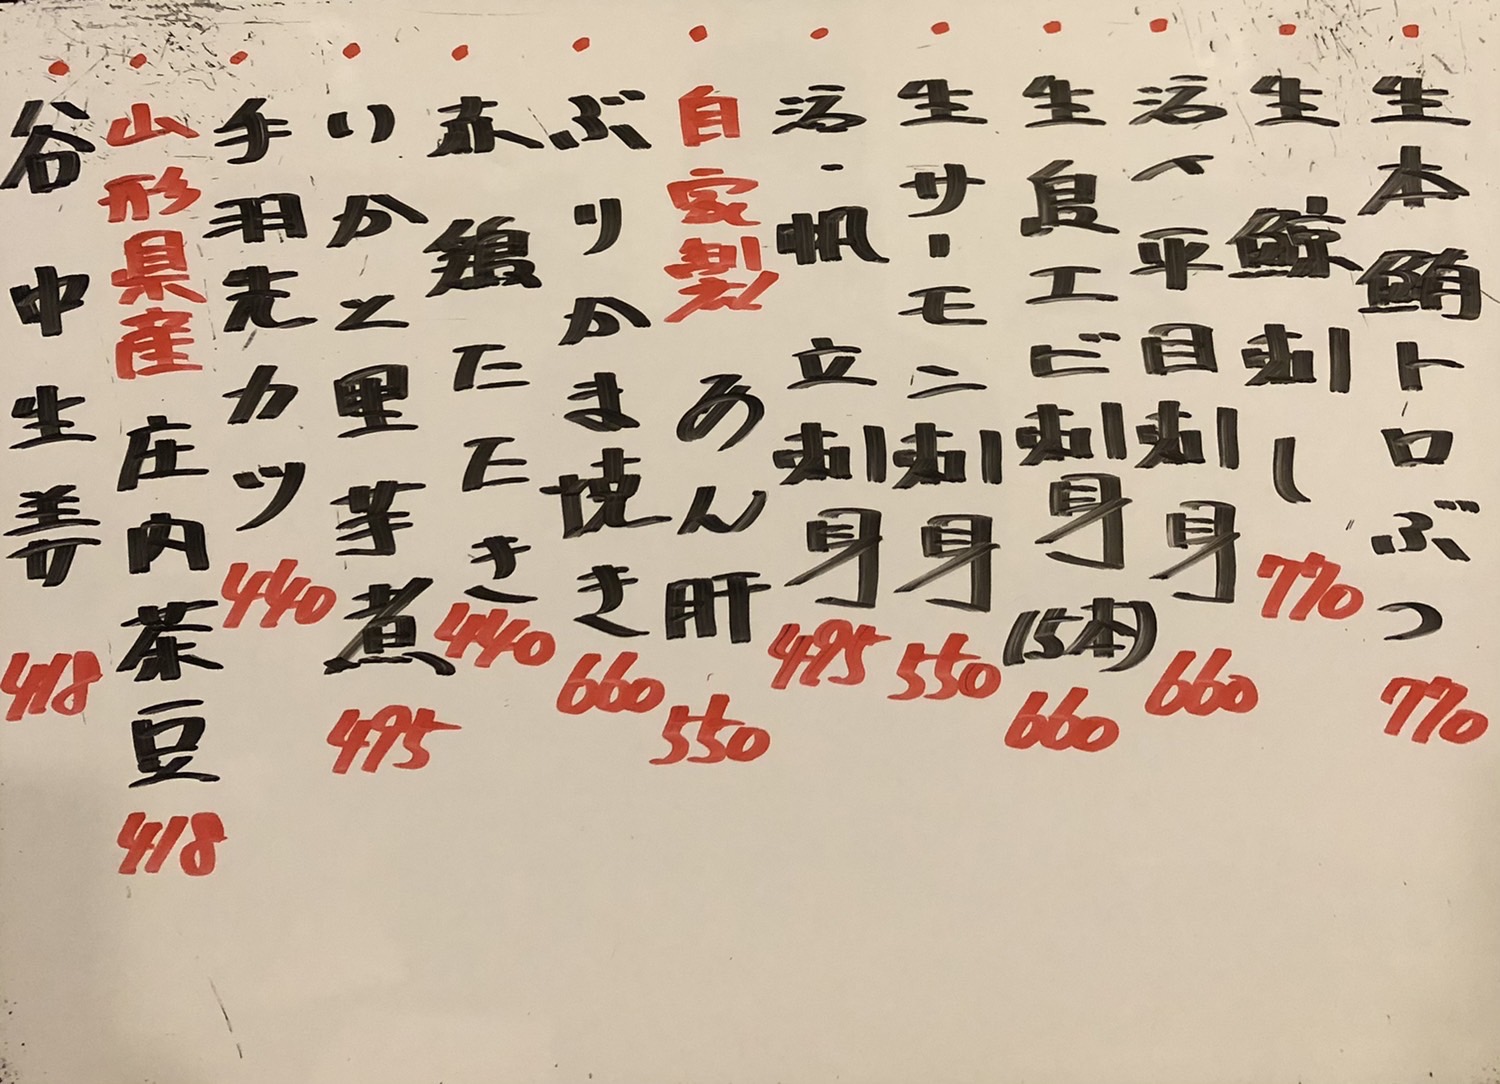 生本鮪トロぶつ 770
生鯨刺し 770
活〆平目刺身 660
生良エビ刺身(15本) 660
生サーモン刺身 550
活・帆立刺身 495
自家製 あん肝 550
ぶりかま焼き 660
赤鶏たたき 440
いかと里芋煮 495
手羽先カツ 440
山形県産 庄内茶豆 418
谷中生姜 418